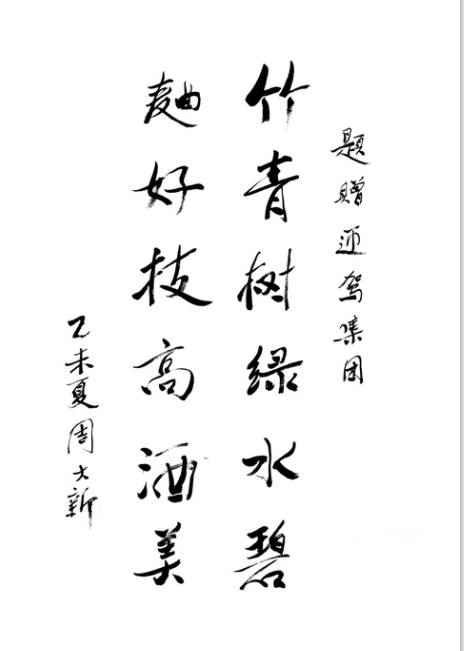 题赠迎驾集团
竹青树绿水碧
麯好技高酒美
乙未夏周大新